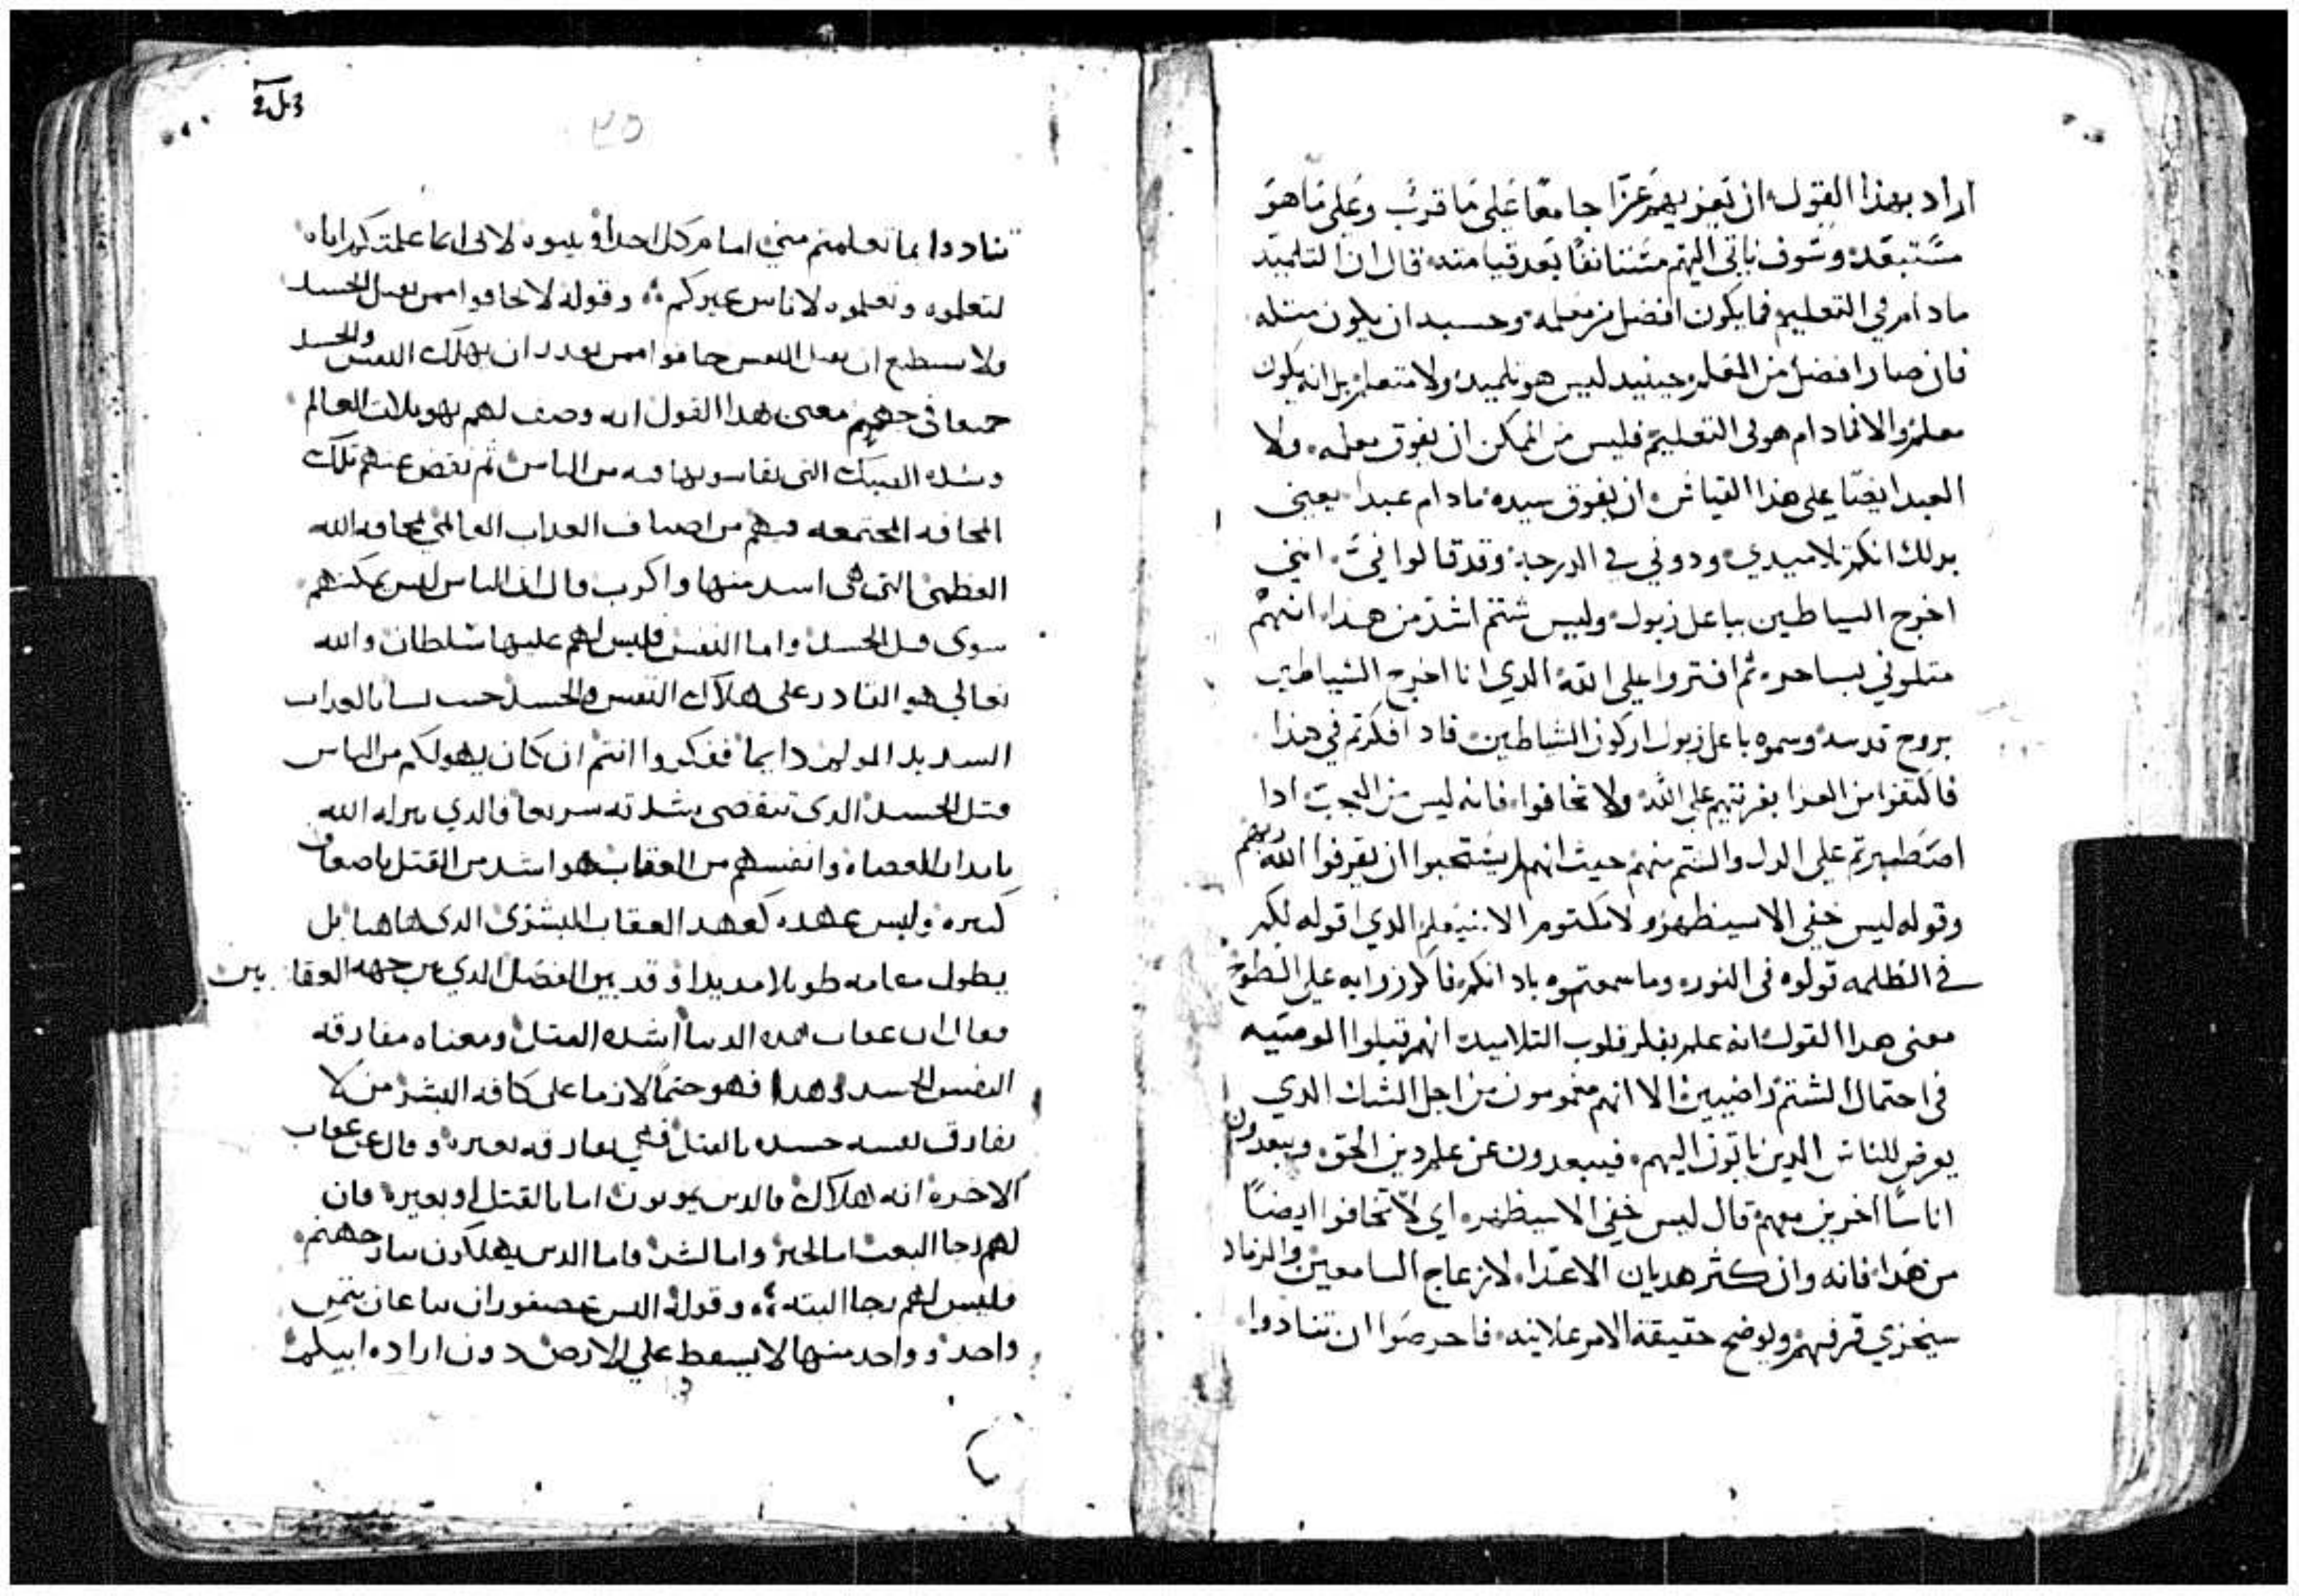 اراد بهذا القول ان يعزيهم عزا جامعًا على ما قرب وعلى ما هو
مستبعد وسوف ياتي اليهم مستانفًا بعد قيامته قال ان التلميد
مادام في التعليم فما يكون افضل من معلمه وحسبه ان يكون مثله
فان صار افضل من المعلم حينيد ليس هو تلميد ولا متعلم بل انه يكون
معلم والا فما دام هو في التعليم فليس من الممكن ان يفوق معلمه ولا
العبد ايضًا على هذا القياس ان يفوق سيده مادام عبدا يعني
بدلك انكم تلاميدي ودوني في الدرجة وقد قالوا فيّ انني
اخرج الشياطين بباعل زبول وليس شتم اشد من هذا انهم
مثلوني بساحر ثم افتروا على الله الدي انا اخرج الشياطين
بروح قدسه وسموه باعل زبول اركون الشياطين فادا افكرتم في هذا
فاكتفوا من العزا بفريتهم على الله ولا تخافوا فانه ليس من العجب ادا
اصطبرتم على الدل والشتم منهم حيث انهم لم يستحيوا ان يقرفوا الله ربهم
وقوله ليس خفي الا سيظهر ولا مكتوم الا سيعلم الدي اقوله لكم
في الظلمه قولوه في النور وما سمعتموه بادانكم فاكرزوا به على السطوح
معنى هدا القول انه علم بفكر قلوب التلاميد انهم قبلوا الوصيه
في احتمال الشتم راضيين الا انهم مغمومون من اجل الشك الدي
يعرض للناس الدين ياتون اليهم فيبعدون عن علم دين الحق ويبعدون
اناسًا اخرين معهم قال ليس خفي الا سيظهر اي لا تخافوا ايضًا
من هذا فانه وان كثر هديان الاعدا لازعاج السامعين والرماد
سيخزي قرفهم ويوضح حقيقة الامر علانيه فاحرصوا ان تنادوا
تنادوا بما تعلمتم مني امام كل احد ولا لاني انما علمتكم اياه
لتعلموه وتعلموه لاناس غيركم وقوله لا تخافوا ممن يقتل الجسد
ولا يستطيع ان يقتل النفس خافوا ممن يقدر ان يهلك النفس والجسد
جميعا في جهنم معنى هدا القول انه وصف لهم تهويلات العالم
وشده التي يقاسونها فيه من الناس ثم نفض عنهم تلك
المخافه المجتمعه فيهم من اصناف العداب العالمي بمخافه الله
العظمى التي هي اشد منها واكرب قال ان الناس ليس يمكنهم
سوى قتل الجسد واما النفس فليس لهم عليها سلطان والله
تعالي هو القادر على هلاك النفس والجسد حيث يشا بالعداب
الشديد المولم دايما ففكروا انتم ان كان يهولكم من الناس
قتل الجسد الدي تنقضي شدته سريعا فالدي ينزله الله
بابدان العصاه وانفسهم من العقاب هو اشد من القتل باضعاف
كثيره وليس عهده كعهد العقاب البشري الدي هاهنا بل
يطول مقامه طويلا مديدا وقد بين الفصل الدي بين جهه العقابين
فقال ان عقاب هده الدنيا اشده القتل ومعناه مفارقه
النفس الجسد وهدا فهو حتمًا لازما على كافه البشر من لا
تفارق نفسه جسده بالقتل فهي تفارقه بغيره وقال عن عقاب
الاخره انه اهلاك فالدين يموتون اما بالقتل او بغيره فان
لهم رجا البعث اما لخير واما لشر فاما الدين يهلكون بنار جهنم
فليس لهم رجا البته وقوله اليس عصفوران يباعان بثمن
واحد وواحد منها لا يسقط علي الارض دون اراده ابيكم